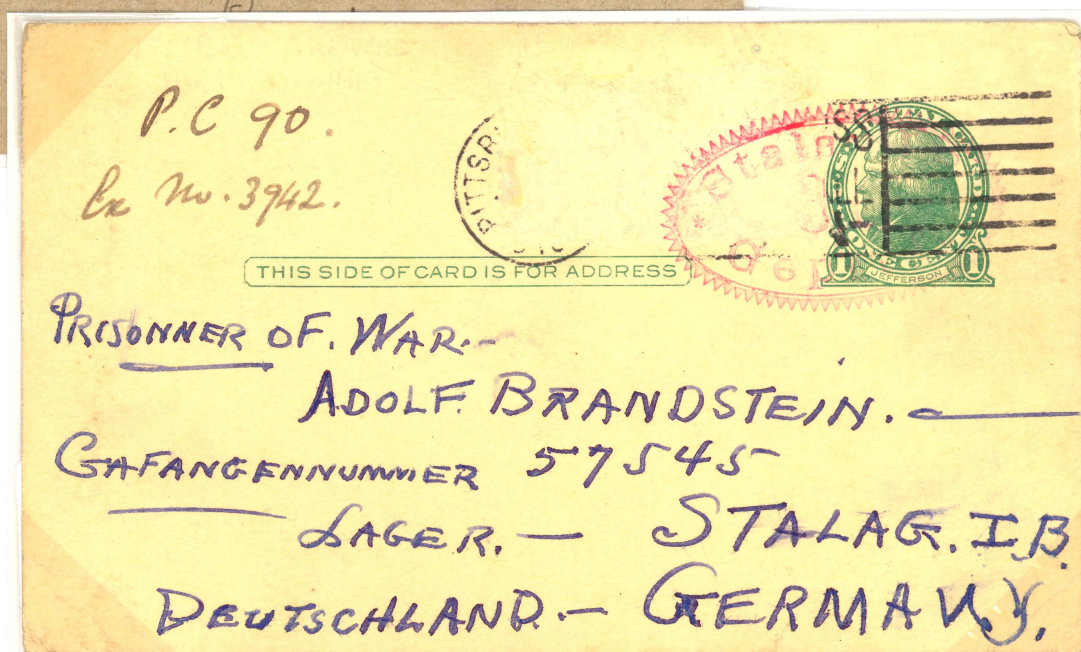 P.C 90.
Ex No. 3942.
PITTSB
Stala
Gep
U.S. POSTAL CARD
ONE CENT
1 JEFFERSON 1
THIS SIDE OF CARD IS FOR ADDRESS
PRISONNER OF. WAR.-
ADOLF. BRANDSTEIN.
GAFANGENNUMMER 57545
LAGER. — STALAG. I.B.
DEUTSCHLAND.— GERMANY.